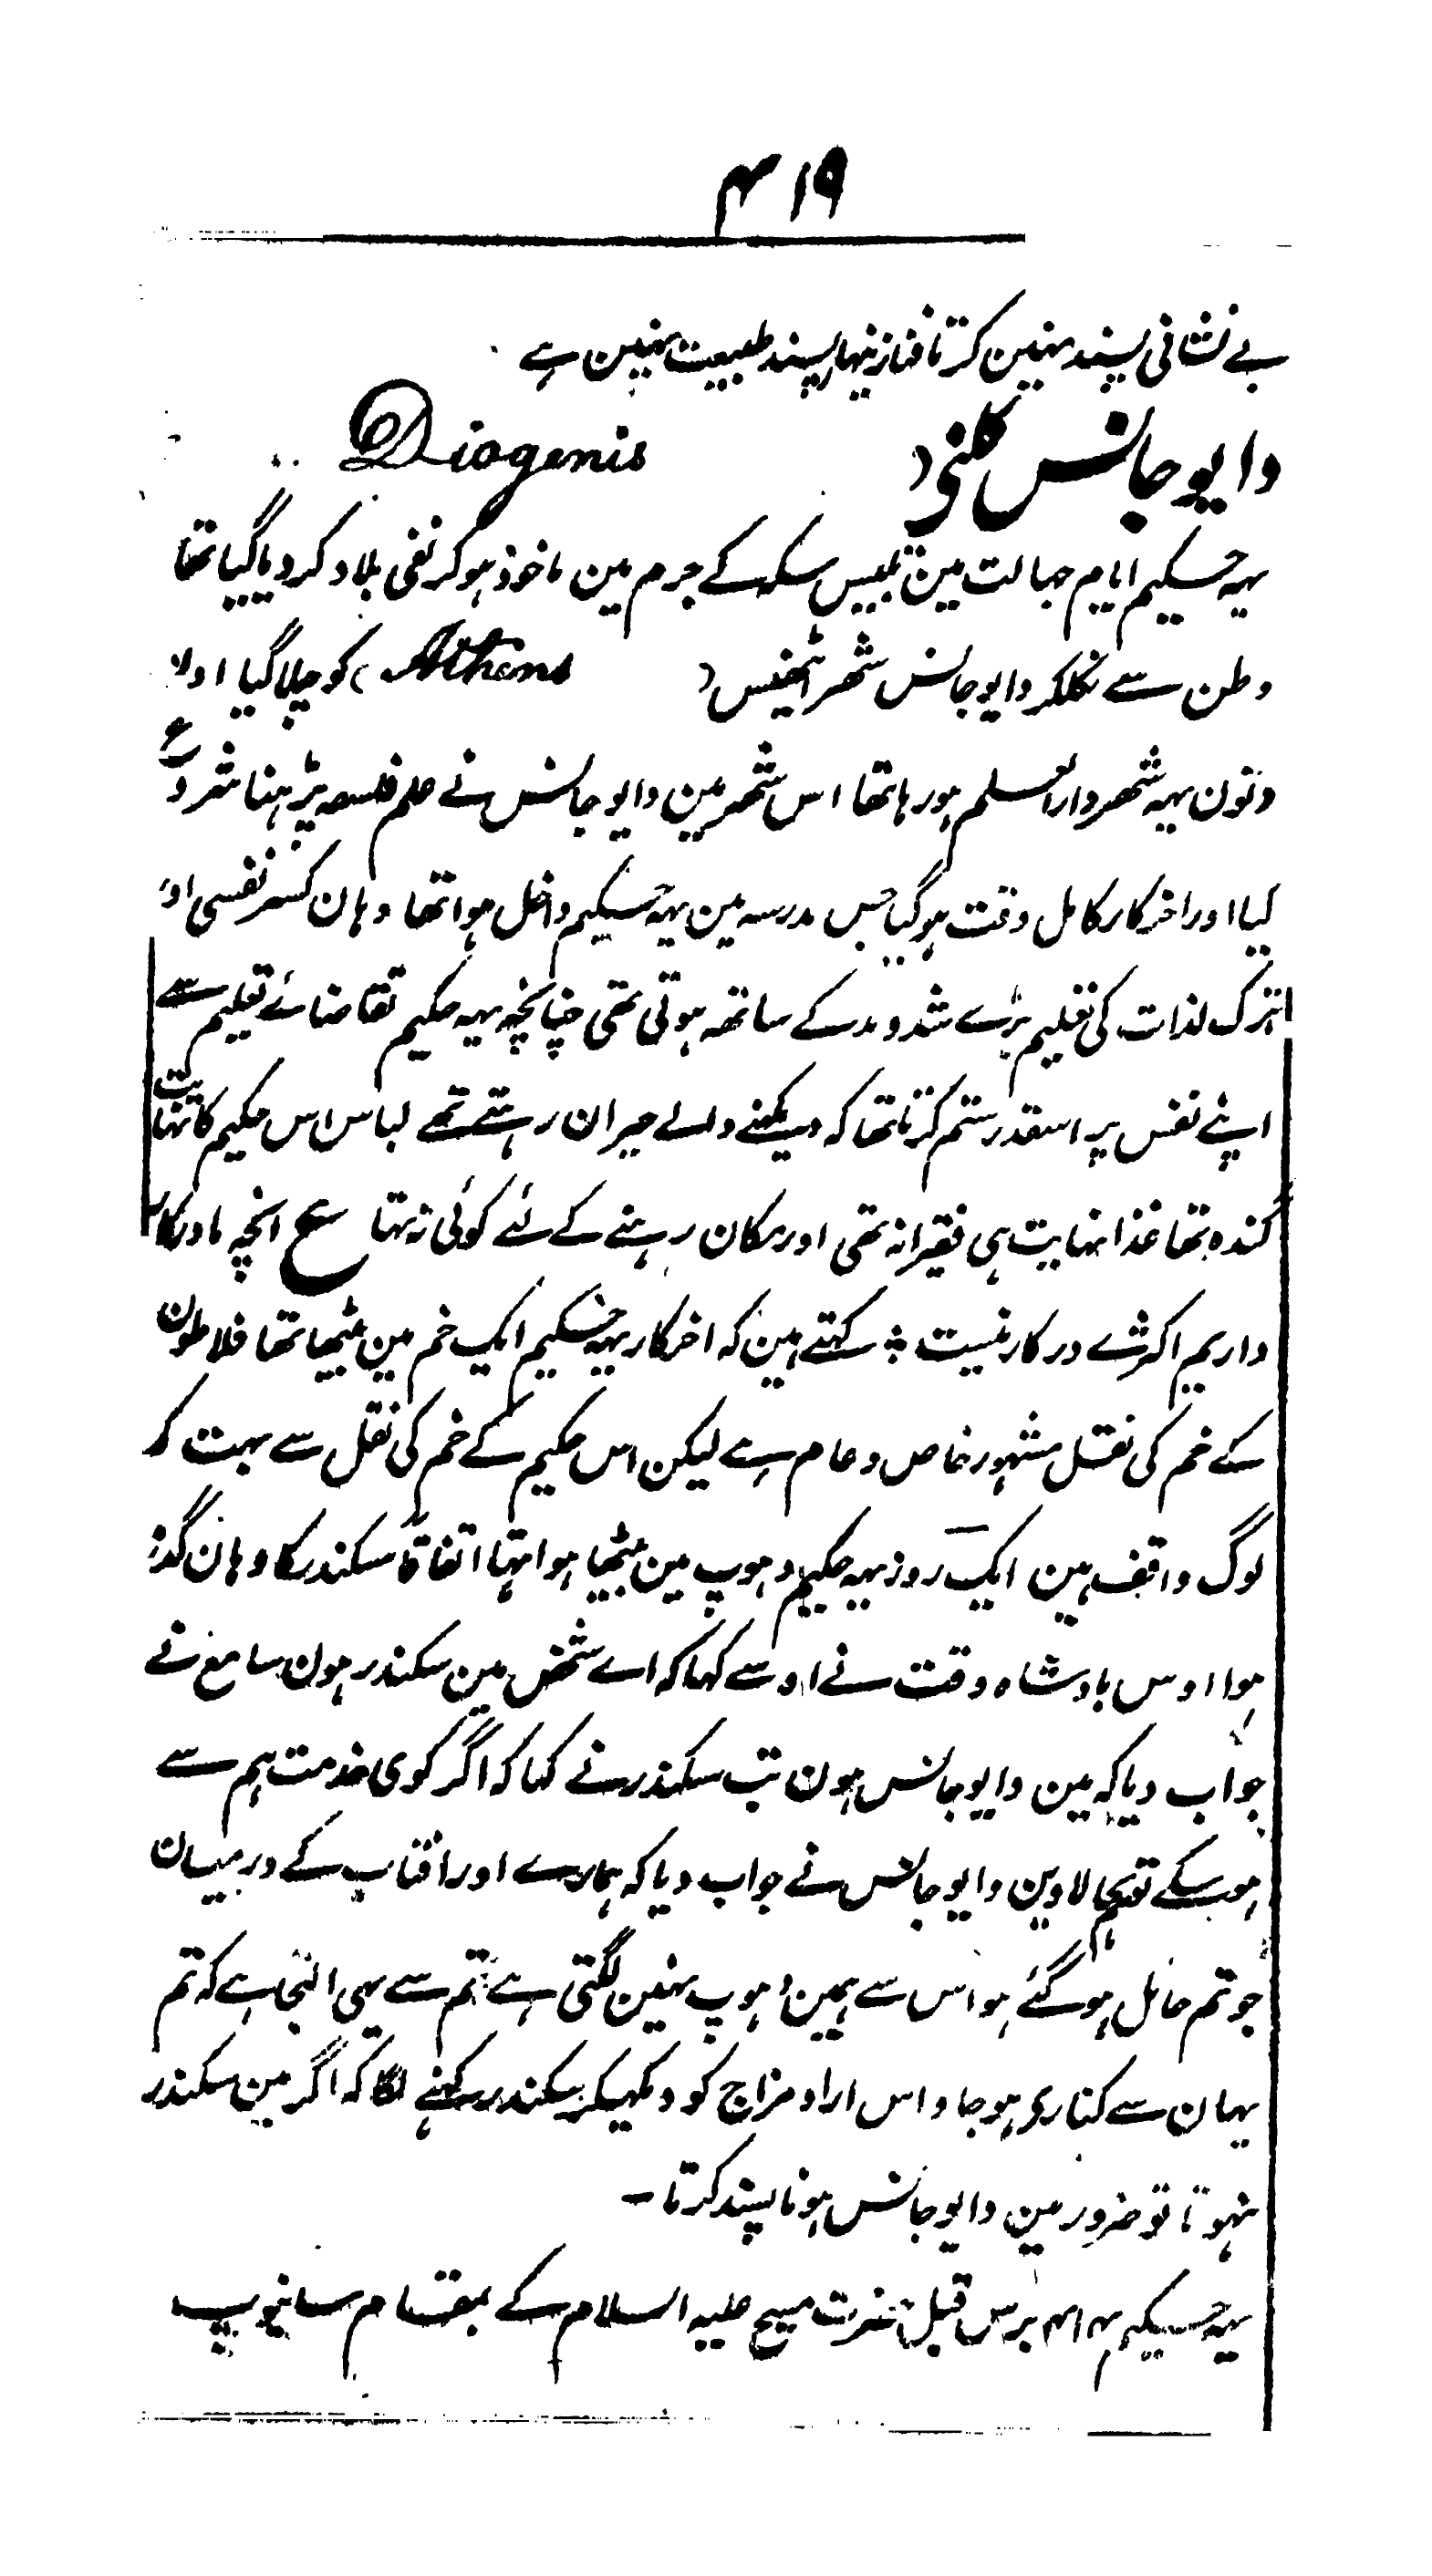 ۴۱۹
بے نشانی پسند نہین کرتا فنا زینہار پسند طبیعت نہین ہے
دایوجانس کلبی ( Diogenis
یہہ حکیم ایام جہالت مین تلبیس سکہ کے جرم مین ماخوذ ہوکر نفی بلاد کر دیا گیا تھا
وطن سے نکلکر دایوجانس شھر اتھینس ( Athens ) کو چلا گیا اولا
دنون یہہ شھر دارالعلم ہو رہا تھا اس شھر مین دایوجانس نے علم فلسفہ پڑہنا شروع
کیا اور اخرکار کامل وقت ہوگیا جس مدرسہ مین یہہ حکیم داخل ہوا تھا وہان کسر نفسی اور
ترک لذات کی تعلیم بڑے شد و مد کے ساتھہ ہوتی تھی چنانچہ یہہ حکیم تقاضائے تعلیم سے
اپنے نفس پر اسقدر ستم کرتا تھا کہ دیکھنے والے حیران رہتے تھے لباس اس حکیم کا نہایت
گندہ تھا غذا نہایت ہی فقیرانہ تھی اور مکان رہنے کے لئے کوئی نتہا ع انچہ ما درکار
داریم اکثرے درکار نیست ؛ کہتے ہین کہ اخرکار یہہ حکیم ایک خم مین بیٹھا تھا فلاطون
کے خم کی نقل مشہور خاص و عام ہے لیکن اس حکیم کے خم کی نقل سے بہت کم
لوگ واقف ہین ایک روز یہہ حکیم دہوپ مین بیٹھا ہوا تہا اتفاقاً سکندر کا وہان گذر
ہوا اوس بادشاہ وقت نے اوسے کہا کہ اے شخص مین سکندر ہون سامع نے
جواب دیا کہ مین دایوجانس ہون تب سکندر نے کہا کہ اگر کوی خدمت ہم سے
ہوسکے تو بجا لاوین دایوجانس نے جواب دیا کہ ہمارے اور افتاب کے درمیان
جو تم حائل ہوگئے ہو اس سے ہمین دہوپ نہین لگتی ہے تم سے یہی التجا ہے کہ تم
یہان سے کناری ہوجاو اس ازاد مزاج کو دیکہیکر سکندر کہنے لگا کہ اگر مین سکندر
نہوتا تو ضرور مین دایوجانس ہونا پسند کرتا ـ
یہہ حکیم ۴۱۴ برس قبل حضرت مسیح علیہ السلام کے بمقام سانیوپ